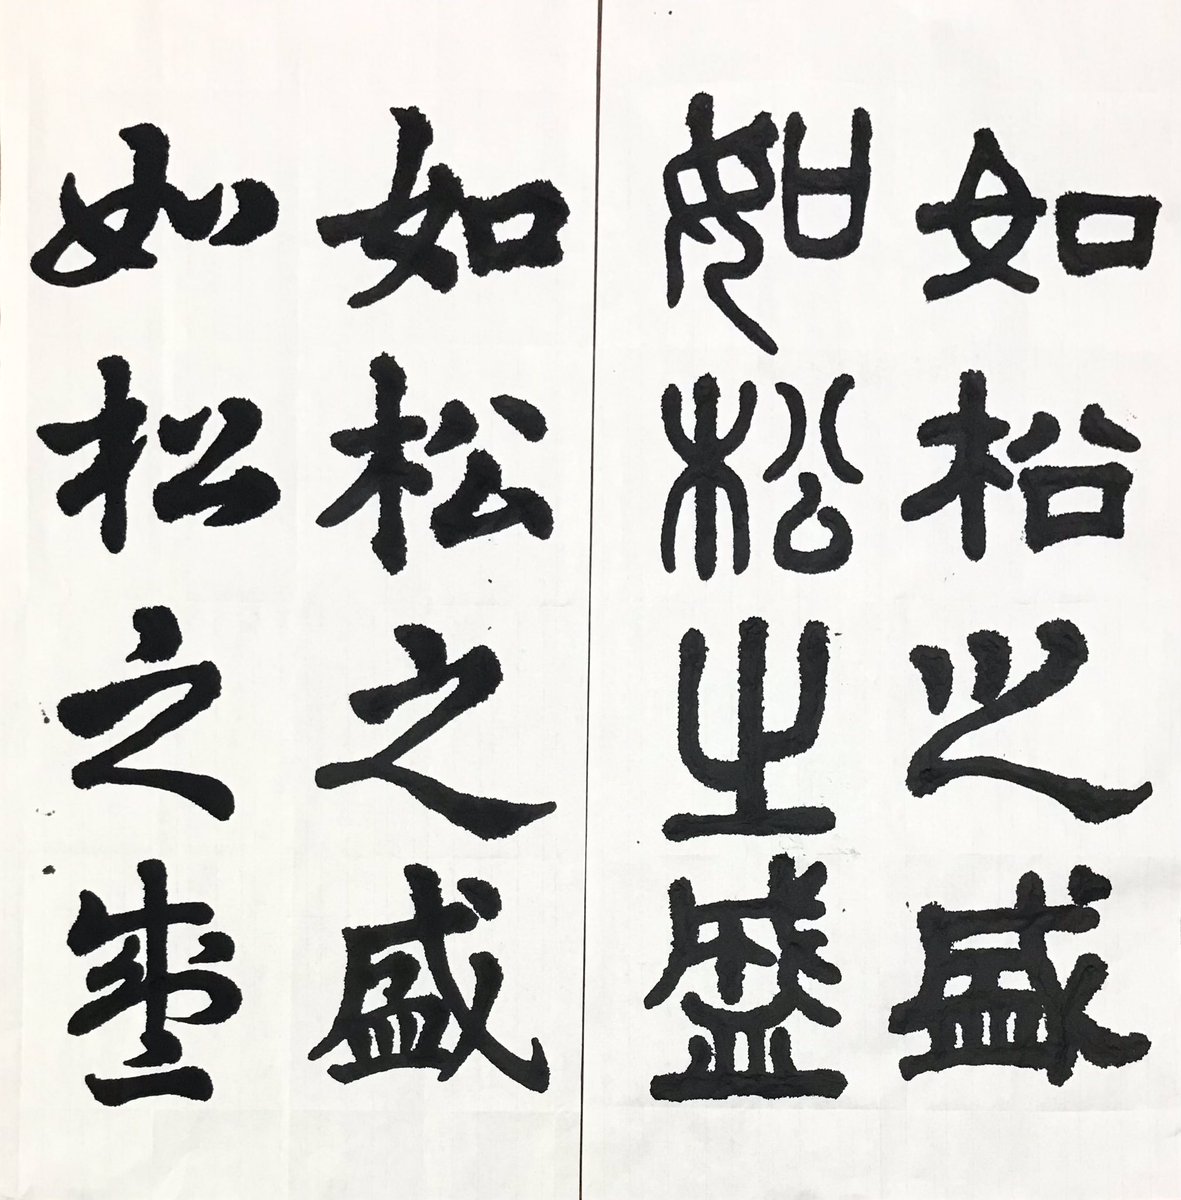 如松之盛
如松之盛
如松之盛
如松之盛